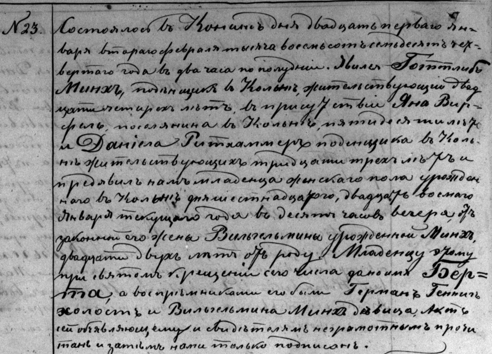 N 23. Состоялось въ Конинѣ дня двадцать перваго Ян-
варя втораго февраля тысяча восемьсотъ семьдесятъ чет-
вертаго года въ два часа по полудни. Явился Готтлибъ
Минхъ, поденщикъ въ Кольнѣ, жительствующій двад-
цати четырехъ лѣтъ, въ присутствіи Яна Вир-
фель, поселянина въ Кольнѣ, пятидесяти лѣтъ
и Даніела поденщика въ Коль-
нѣ жительствующихъ тридцати трехъ лѣтъ и
предъявилъ намъ младенца женскаго пола урожден-
наго въ Кольнѣ дня шестнадцатаго, двадцать восьмаго
Января текущаго года въ десять часовъ вечера, отъ
законной его жены Вильгельмины урожденной Минхъ,
двадцати двухъ лѣтъ отъ роду. Младенцу этому
при святомъ крещеніи его числа дано имя Бер-
та, а воспріемниками его были Германъ Геннигъ
холостъ и Вильгельмина Минхъ дѣвица. Актъ
сей объявляющему и свидѣтелямъ неграмотнымъ прочи-
танъ и затѣмъ нами только подписанъ.